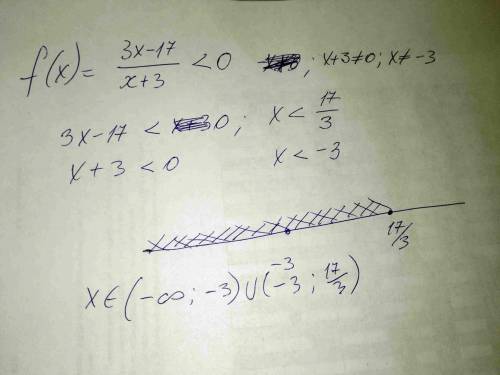 f(x) = (3x-17)/(x+3) < 0 ; x+3≠0; x≠ -3
3x-17 < 0; x < 17/3
x+3 < 0 x < -3
-3 17/3
x ∈ (-∞; -3) ∪ (-3; 17/3)